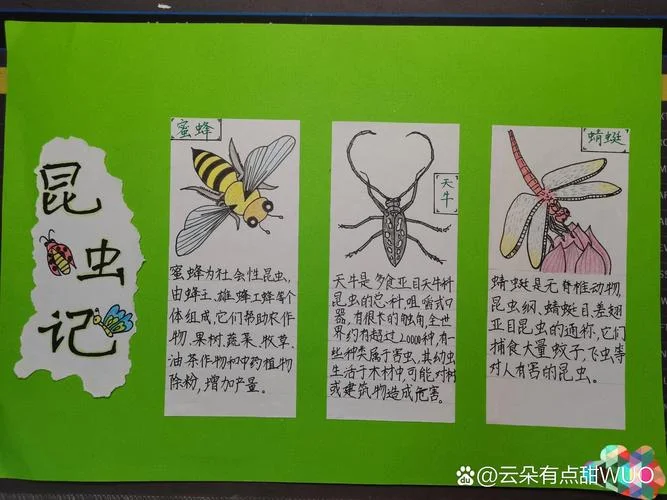 昆
虫
记
蜜蜂
蜜蜂为社会性昆虫,
由蜂王、雄蜂、工蜂等个
体组成,它们帮助农作
物、果树、蔬菜、牧草、
油茶作物和中药植物
除粉,增加产量。
天
牛
天牛是多食亚目天牛科
昆虫的总称,咀嚼式口
器,有很长的触角,全世
界约有超过20000种,有一
些种类属于害虫,其幼虫
生活于木材中,可能对树
或建筑物造成危害。
蜻蜓
蜻蜓是无脊椎动物,
昆虫纲、蜻蜓目、差翅
亚目昆虫的通称,它们
捕食大量蚊子、飞虫等
对人有害的昆虫。
Baidu @云朵有点甜WUO